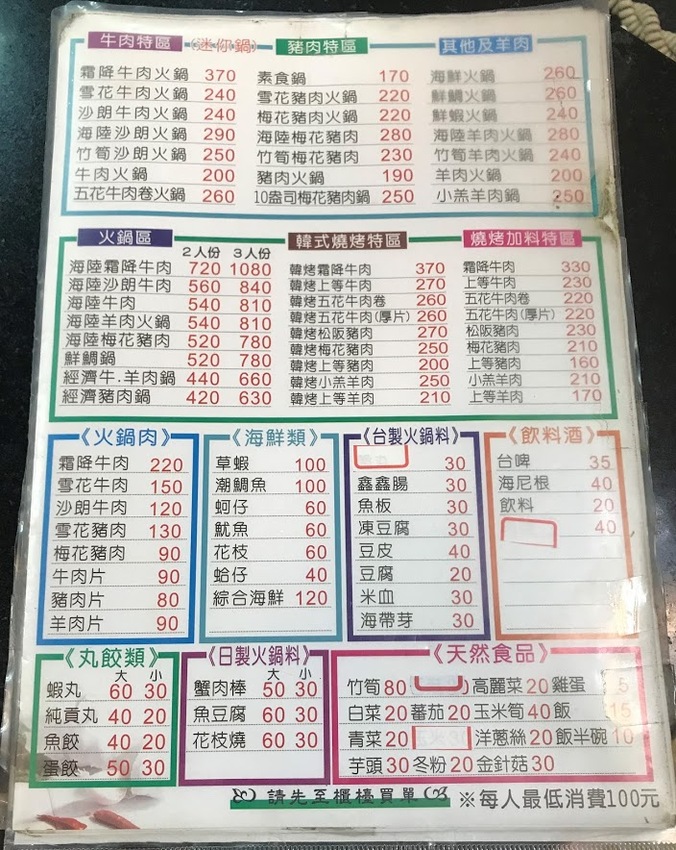 牛肉特區 (迷你鍋) 豬肉特區 其他及羊肉
霜降牛肉火鍋 370 素食鍋 170 海鮮火鍋 260
雪花牛肉火鍋 240 雪花豬肉火鍋 220 鮮鯛火鍋 260
沙朗牛肉火鍋 240 梅花豬肉火鍋 220 鮮蝦火鍋 240
海陸沙朗火鍋 290 海陸梅花豬肉 280 海陸羊肉火鍋 280
竹筍沙朗火鍋 250 竹筍梅花豬肉 230 竹筍羊肉火鍋 240
牛肉火鍋 200 豬肉火鍋 190 羊肉火鍋 200
五花牛肉卷火鍋 260 10盎司梅花豬肉鍋 250 小羔羊肉鍋 250
火鍋區 韓式燒烤特區 燒烤加料特區
2人份 3人份
海陸霜降牛肉 720 1080 韓烤霜降牛肉 370 霜降牛肉 330
海陸沙朗牛肉 560 840 韓烤上等牛肉 270 上等牛肉 230
海陸牛肉 540 810 韓烤五花牛肉卷 260 五花牛肉卷 220
海陸羊肉火鍋 540 810 韓烤五花牛肉(厚片) 260 五花牛肉(厚片) 220
海陸梅花豬肉 520 780 韓烤松阪豬肉 270 松阪豬肉 230
鮮鯛鍋 520 780 韓烤梅花豬肉 250 梅花豬肉 210
經濟牛.羊肉鍋 440 660 韓烤上等豬肉 200 上等豬肉 160
經濟豬肉鍋 420 630 韓烤小羔羊肉 250 小羔羊肉 210
韓烤上等羊肉 210 上等羊肉 170
《火鍋肉》
霜降牛肉 220
雪花牛肉 150
沙朗牛肉 120
雪花豬肉 130
梅花豬肉 90
牛肉片 90
豬肉片 80
羊肉片 90
《海鮮類》
草蝦 100
潮鯛魚 100
蚵仔 60
魷魚 60
花枝 60
蛤仔 40
綜合海鮮 120
《台製火鍋料》
30
鑫鑫腸 30
魚板 30
凍豆腐 30
豆皮 40
豆腐 20
米血 30
海帶芽 30
《飲料酒》
台啤 35
海尼根 40
飲料 20
40
《丸餃類》
大 小
蝦丸 60 30
純貢丸 40 20
魚餃 40 20
蛋餃 50 30
《日製火鍋料》
大 小
蟹肉棒 50 30
魚豆腐 60 30
花枝燒 60 30
《天然食品》
竹筍 80 高麗菜 20 雞蛋 5
白菜 20 蕃茄 20 玉米筍 40 飯 15
青菜 20 洋蔥絲 20 飯半碗 10
芋頭 30 冬粉 20 金針菇 30
請先至櫃檯買單 ※每人最低消費100元